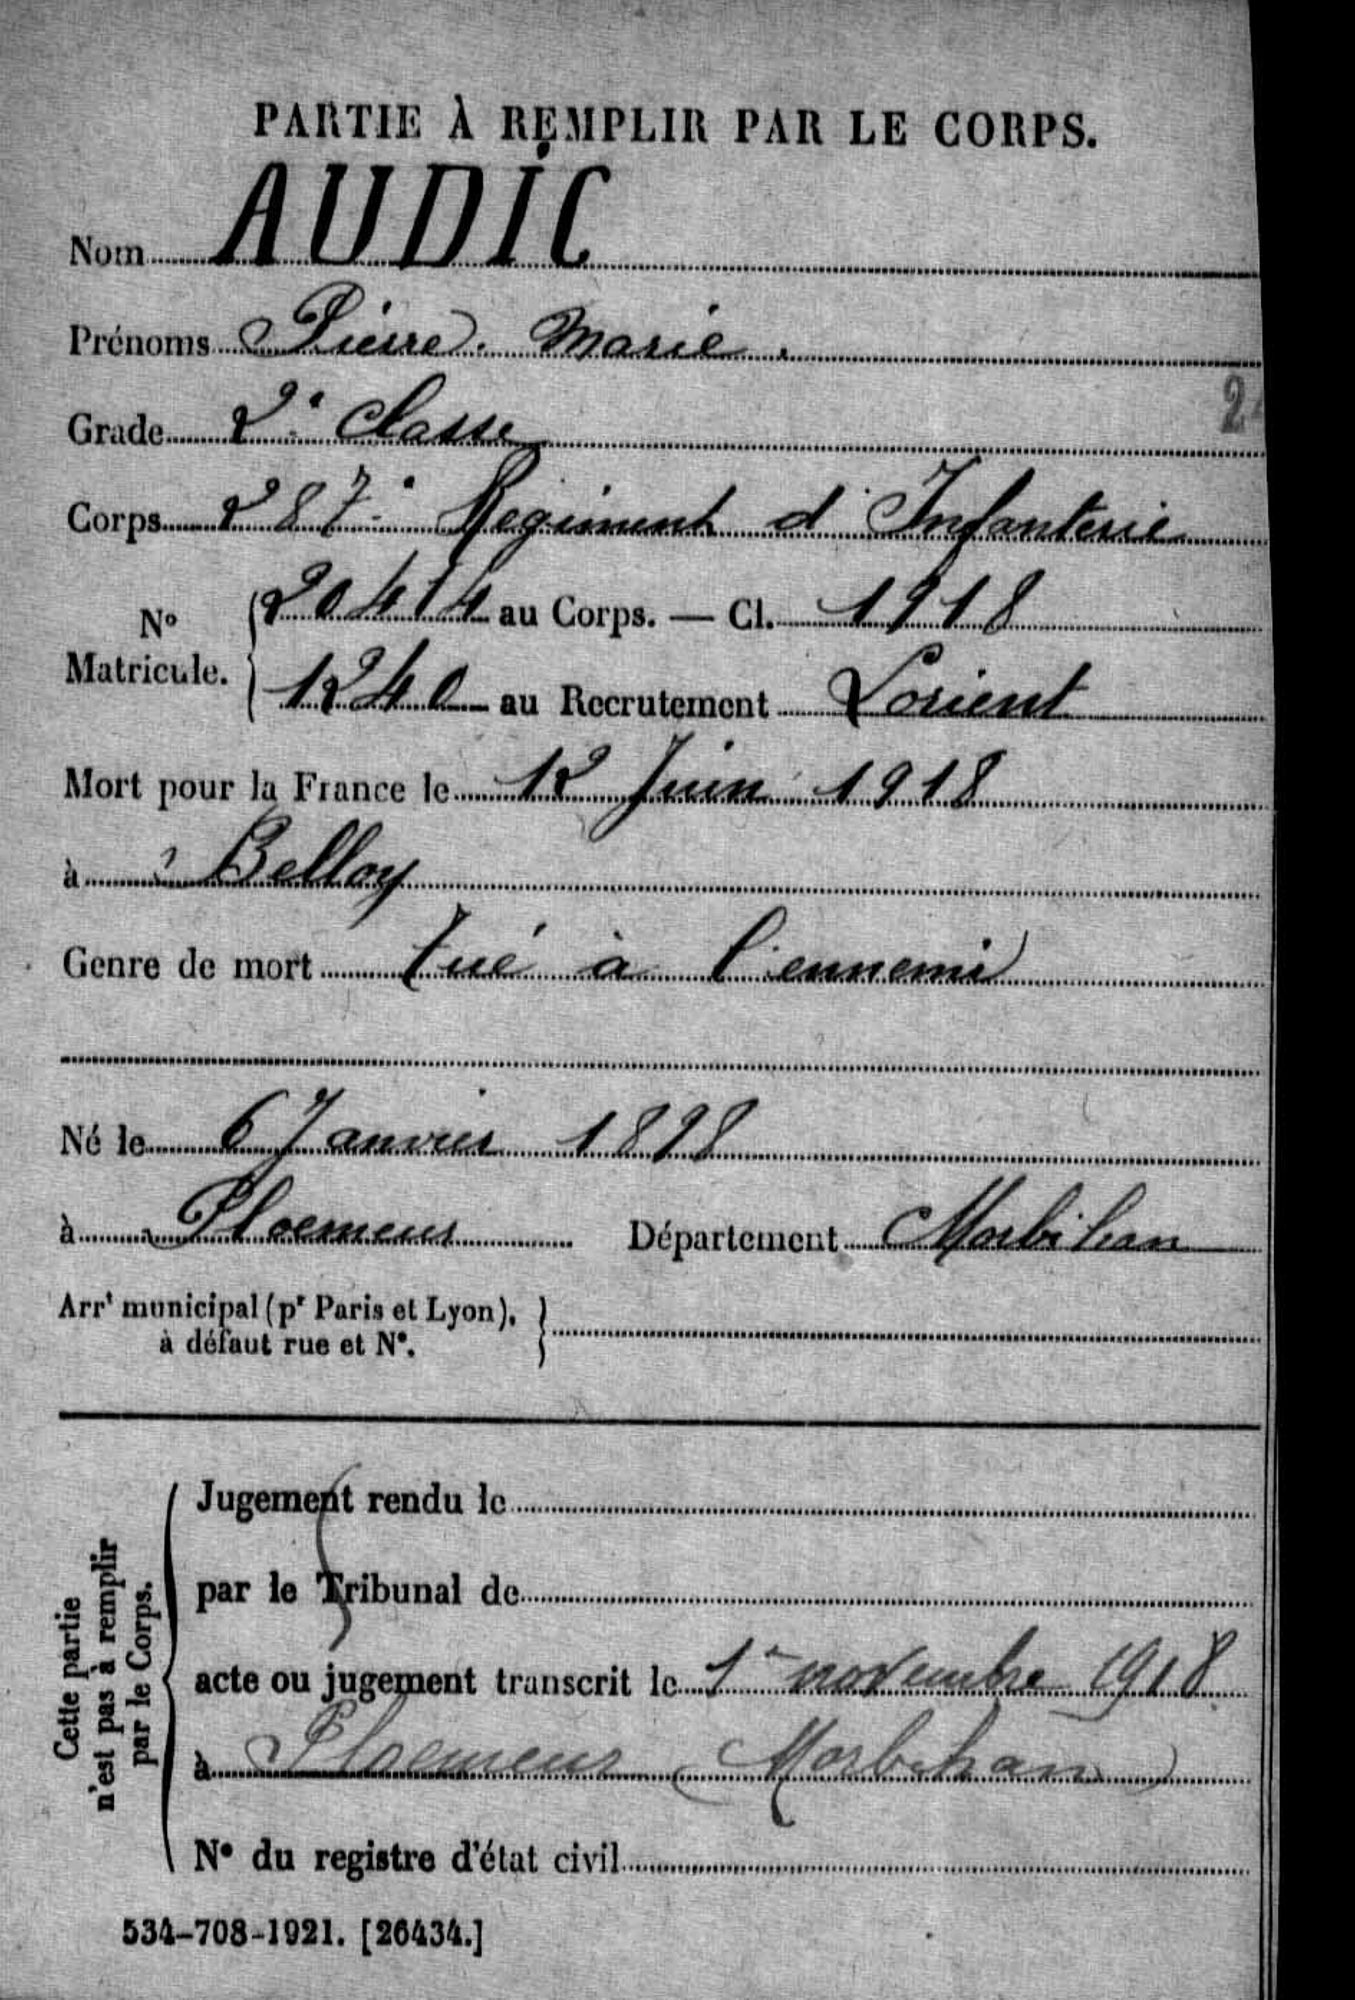 PARTIE À REMPLIR PAR LE CORPS.
Nom AUDIC
Prénoms Pierre. Marie.
Grade 2e Classe
Corps 287e Régiment d'Infanterie
No Matricule. 20414 au Corps. — Cl. 1918
1240 au Recrutement Lorient
Mort pour la France le 12 Juin 1918
à Belloy
Genre de mort tué à l'ennemi
Né le 6 Janvier 1898
à Ploemeur Département Morbihan
Arrt municipal (pr Paris et Lyon),
à défaut rue et No.
Cette partie
n'est pas à remplir
par le Corps.
Jugement rendu le
par le Tribunal de
acte ou jugement transcrit le 1er novembre 1918
à Ploemeur (Morbihan)
No du registre d'état civil
534-708-1921. [26434.]